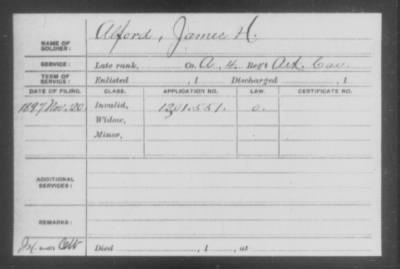 NAME OF SOLDIER: Alford, James H.
SERVICE: Late rank, Co. A. 4. Reg't Ark. Cav.
TERM OF SERVICE: Enlisted , 1 Discharged , 1
DATE OF FILING. CLASS. APPLICATION NO. LAW. CERTIFICATE NO.
1897 Nov. 20. Invalid, 1201.551. o.
Widow,
Minor,
ADDITIONAL SERVICES:
REMARKS:
Died , 1 , at